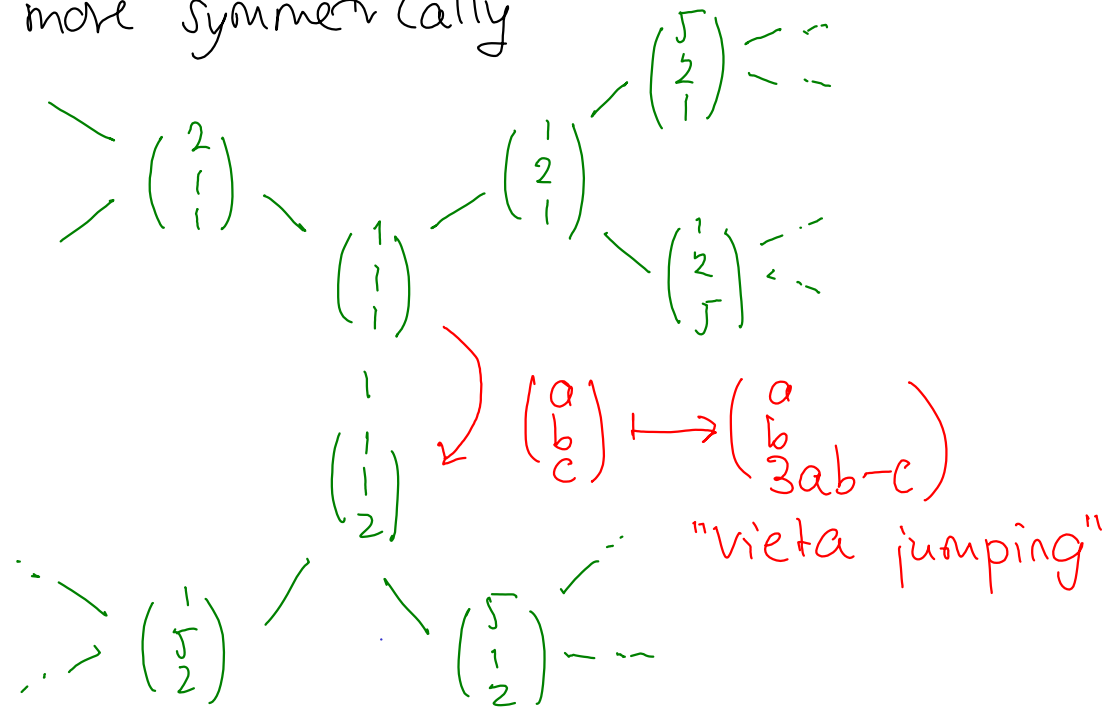 more symmetrically
5
2
1
2
1
1
1
2
1
1
1
1
1
2
5
a
b
c
↦
a
b
3ab-c
1
1
2
"Vieta jumping"
1
5
2
5
1
2